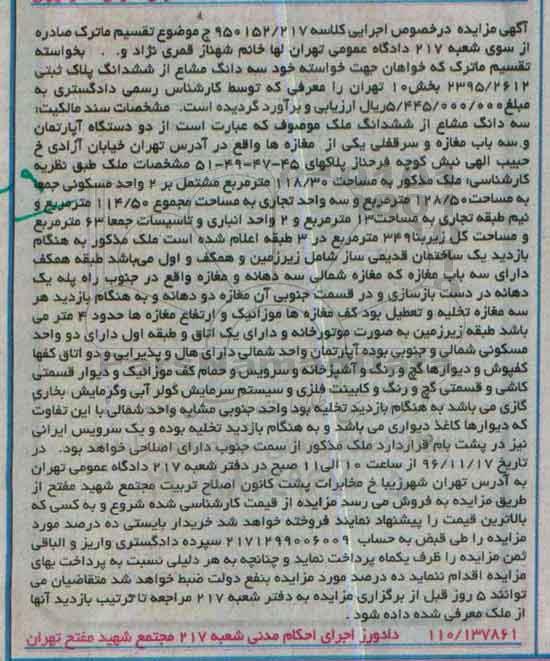 آگهی مزایده درخصوص اجرایی کلاسه ۹۵۰۱۵۲/۲۱۷ ج موضوع تقسیم ماترک صادره
از سوی شعبه ۲۱۷ دادگاه عمومی تهران لها خانم شهناز قمری نژاد و. . بخواسته
تقسیم ماترک که خواهان جهت خواسته خود سه دانگ مشاع از ششدانگ پلاک ثبتی
۲۳۹۵/۲۶۱۲ بخش۱۰ تهران را معرفی که توسط کارشناس رسمی دادگستری به
مبلغ۵/۴۴۵/۰۰۰/۰۰۰ریال ارزیابی و برآورد گردیده است. مشخصات سند مالکیت:
سه دانگ مشاع از ششدانگ ملک موصوف که عبارت است از دو دستگاه آپارتمان
و سه باب مغازه و سرقفلی یکی از مغازه ها واقع در آدرس تهران خیابان آزادی خ
حبیب الهی نبش کوچه فرحناز پلاکهای ۴۵-۴۷-۴۹-۵۱ مشخصات ملک طبق نظریه
کارشناسی: ملک مذکور به مساحت ۱۱۸/۳۰ مترمربع مشتمل بر ۲ واحد مسکونی جمعا
به مساحت۱۲۸/۵۰ مترمربع و سه واحد تجاری به مساحت مجموع ۱۱۴/۵۰ مترمربع و
نیم طبقه تجاری به مساحت۱۳ مترمربع و ۲ واحد انباری و تاسیسات جمعا۶۳ مترمربع
و مساحت کل زیربنا۳۴۹ مترمربع در ۳ طبقه اعلام شده است ملک مذکور به هنگام
بازدید یک ساختمان قدیمی ساز شامل زیرزمین و همکف و اول می‌باشد طبقه همکف
دارای سه باب مغازه که مغازه شمالی سه دهانه و مغازه واقع در جنوب راه پله یک
دهانه در دست بازسازی و در قسمت جنوبی آن مغازه دو دهانه و به هنگام بازدید هر
سه مغازه تخلیه و تعطیل بود کف مغازه ها موزائیک و ارتفاع مغازه ها حدود ۴ متر می
باشد طبقه زیرزمین به صورت موتورخانه و دارای یک اتاق و طبقه اول دارای دو واحد
مسکونی شمالی و جنوبی بوده آپارتمان واحد شمالی دارای هال و پذیرایی و دو اتاق کفها
کفپوش و دیوارها گچ و رنگ و آشپزخانه و سرویس و حمام کف موزائیک و دیوار قسمتی
کاشی و قسمتی گچ و رنگ و کابینت فلزی و سیستم سرمایش کولر آبی وگرمایش بخاری
گازی می باشد به هنگام بازدید تخلیه بود واحد جنوبی مشابه واحد شمالی با این تفاوت
که دیوارها کاغذ دیواری می باشد و به هنگام بازدید تخلیه بوده و یک سرویس ایرانی
نیز در پشت بام قراردارد ملک مذکور از سمت جنوب دارای اصلاحی خواهد بود. در
تاریخ ۹۶/۱۱/۱۷ از ساعت ۱۰ الی۱۱ صبح در دفتر شعبه ۲۱۷ دادگاه عمومی تهران
به آدرس تهران شهرزیبا خ مخابرات پشت کانون اصلاح تربیت مجتمع شهید مفتح از
طریق مزایده به فروش می رسد مزایده از قیمت کارشناسی شده شروع و به کسی که
بالاترین قیمت را پیشنهاد نمایند فروخته خواهد شد خریدار بایستی ده درصد مورد
مزایده را طی قبض به حساب ۲۱۷۱۲۹۹۰۰۶۰۰۹ سپرده دادگستری واریز و الباقی
ثمن مزایده را ظرف یکماه پرداخت نماید و چنانچه به هر دلیلی نسبت به پرداخت بهای
مزایده اقدام ننماید ده درصد مورد مزایده بنفع دولت ضبط خواهد شد متقاضیان می
توانند ۵ روز قبل از برگزاری مزایده به دفتر شعبه ۲۱۷ مراجعه تا ترتیب بازدید آنها
از ملک معرفی شده داده شود .
۱۱۰/۱۳۷۸۶۱ دادورز اجرای احکام مدنی شعبه ۲۱۷ مجتمع شهید مفتح تهران